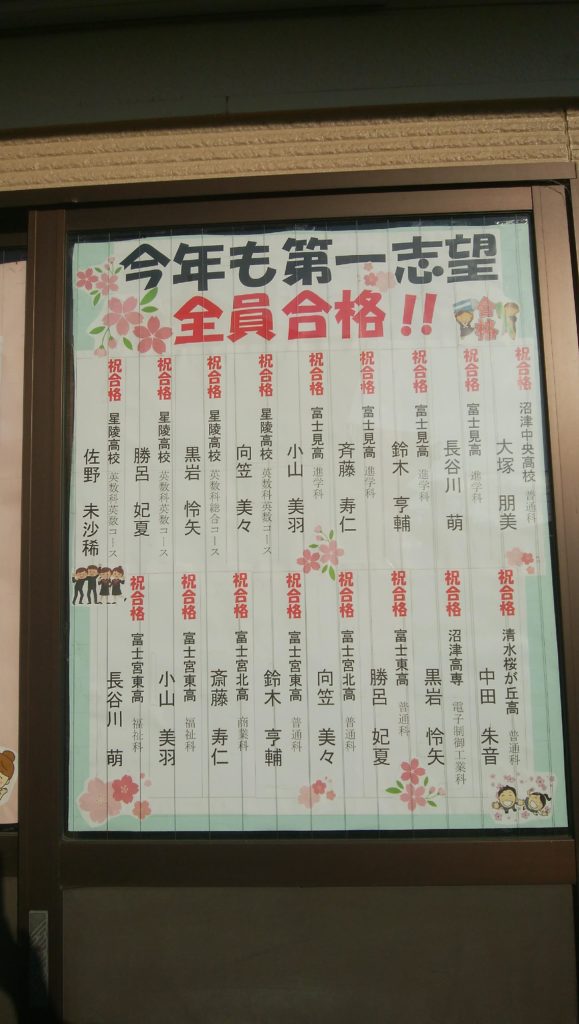 今年も第一志望
全員合格!!
合格
祝合格 沼津中央高校 普通科
大塚 朋美
祝合格 富士見高 進学科
長谷川 萌
祝合格 富士見高 進学科
鈴木 亨輔
祝合格 富士見高 進学科
斉藤 寿仁
祝合格 富士見高 進学科
小山 美羽
祝合格 星陵高校 英数科英数コース
向笠 美々
祝合格 星陵高校 英数科総合コース
黒岩 怜矢
祝合格 星陵高校 英数科英数コース
勝呂 妃夏
祝合格 星陵高校 英数科英数コース
佐野 未沙稀
祝合格 清水桜が丘高 普通科
中田 朱音
祝合格 沼津高専 電子制御工業科
黒岩 怜矢
祝合格 富士東高 普通科
勝呂 妃夏
祝合格 富士宮北高 普通科
向笠 美々
祝合格 富士宮東高 普通科
鈴木 亨輔
祝合格 富士宮北高 商業科
斎藤 寿仁
祝合格 富士宮東高 福祉科
小山 美羽
祝合格 富士宮東高 福祉科
長谷川 萌